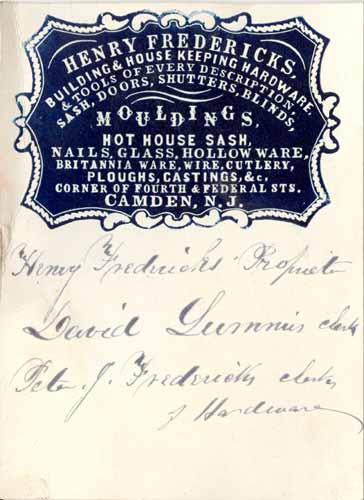 HENRY FREDERICKS,
BUILDING & HOUSE KEEPING HARDWARE,
& TOOLS OF EVERY DESCRIPTION,
SASH, DOORS, SHUTTERS, BLINDS,
MOULDINGS,
HOT HOUSE SASH,
NAILS, GLASS, HOLLOW WARE,
BRITANNIA WARE, WIRE, CUTLERY,
PLOUGHS, CASTINGS, &c,
CORNER OF FOURTH & FEDERAL STS.
CAMDEN, N. J.
Henry Fredericks Proprietor
David Lummis clerk
Peter J. Fredericks clerk
of Hardware